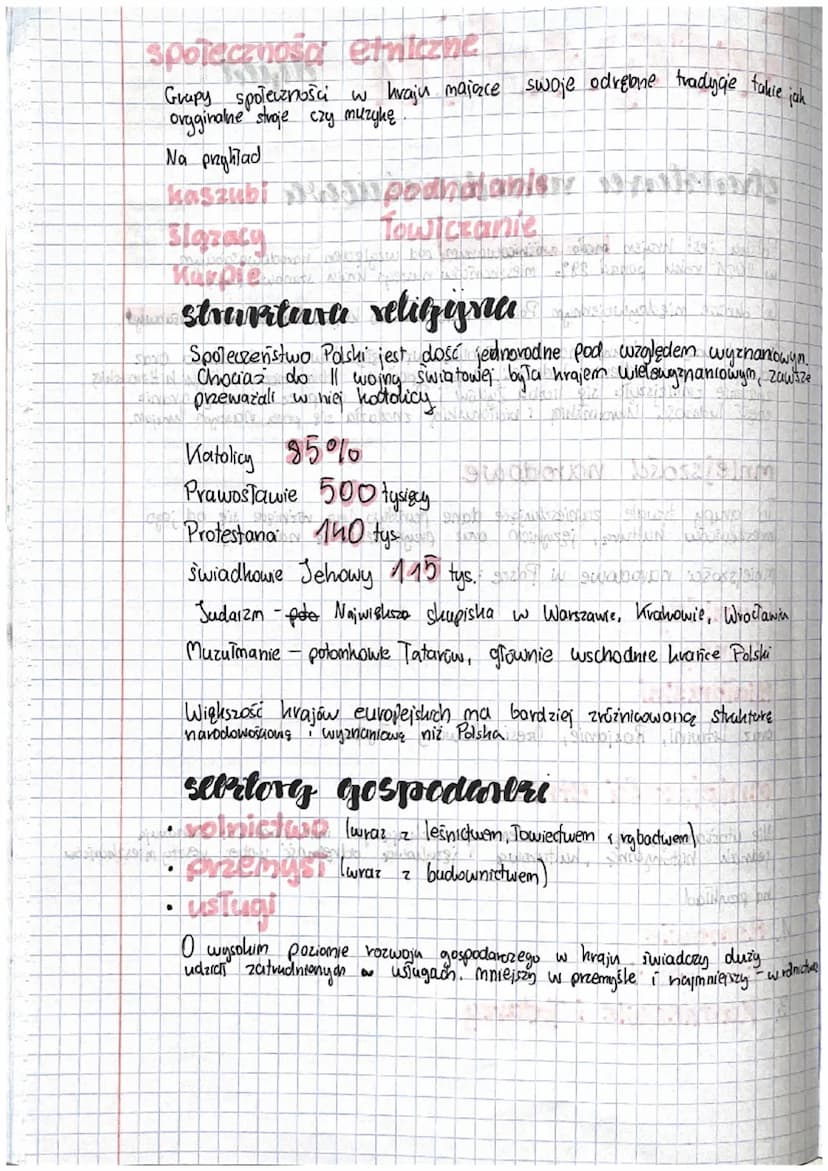 społeczności etniczne
Grupy społeczności w kraju mające swoje odrębne tradycje takie jak
oryginalne stroje czy muzykę.
Na przykład
kaszubi podhalanie
Ślązacy Łowiczanie
Kurpie
struktura religijna
Społeczeństwo Polski jest dość jednorodne pod względem wyznaniowym.
Chociaż do II wojny światowej była krajem wielowyznaniowym, zawsze
przeważali w niej katolicy
Katolicy 85%
Prawosławie 500 tysięcy
Protestanci 140 tys.
świadkowie Jehowy 115 tys.
Judaizm - Największe skupiska w Warszawie, Krakowie, Wrocławiu
Muzułmanie – potomkowie Tatarów, głównie wschodnie krańce Polski
Większość krajów europejskich ma bardziej zróżnicowaną strukturę
narodowościową i wyznaniową niż Polska
sektory gospodarki
• rolnictwo (wraz z leśnictwem, łowiectwem i rybactwem)
• przemysł (wraz z budownictwem)
• usługi
O wysokim poziomie rozwoju gospodarczego w kraju świadczy duży
udział zatrudnionych w usługach. mniejszy w przemyśle i najmniejszy – w rolnictwie